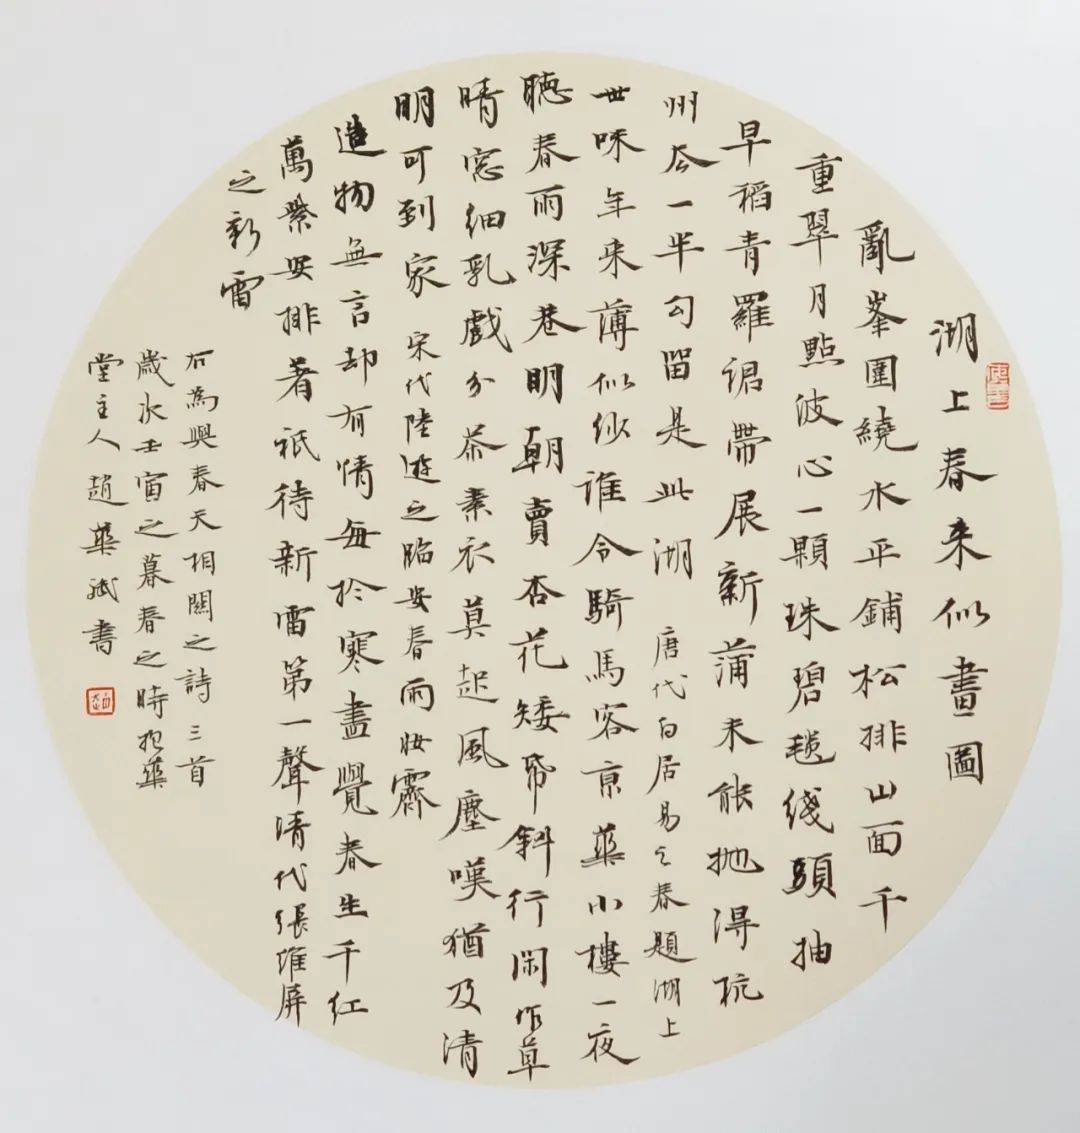 湖上春来似畫圖
亂峯圍繞水平鋪松排山面千
重翠月點波心一顆珠碧毯线頭抽
早稻青羅裙帶展新蒲未能抛得杭
州去一半勾留是此湖 唐代白居易之春題湖上
世味年来薄似纱谁令騎馬客京華小樓一夜
聴春雨深巷明朝賣杏花矮帋斜行閑作草
晴窓细乳戲分茶素衣莫起風塵嘆猶及清
明可到家 宋代陸遊之臨安春雨妝霽
造物無言却有情每於寒盡覺春生千红
萬紫安排著祇待新雷第一聲清代張維屏
之新雷
右為與春天相關之詩三首
歲次壬寅之暮春之時抱華
堂主人趙華斌書